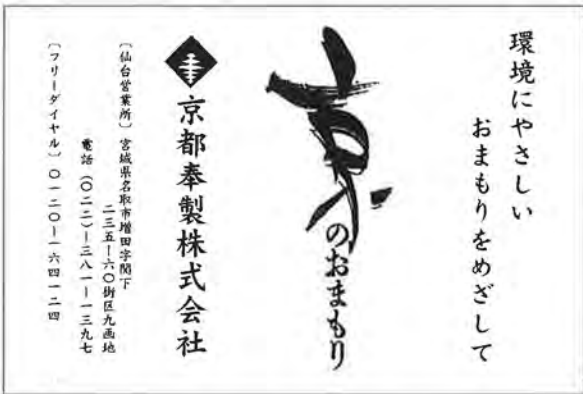 環境にやさしい
おまもりをめざして
京のおまもり
京都奉製株式会社
〔仙台営業所〕 宮城県名取市増田字関下
二三五ー六〇街区九画地
電話 (〇二二)ー三八一ー一三九七
〔フリーダイヤル〕 〇一二〇ー一六四一二四